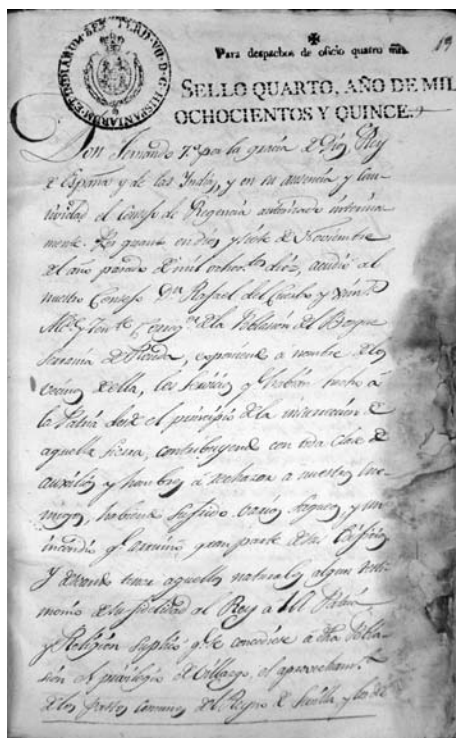 HISPANIARUM ET INDIARUM
Para despachos de oficio quatro mrs.
SELLO QUARTO, AÑO DE MIL
OCHOCIENTOS Y QUINCE.
Don Fernando 7º por la gracia de Dios Rey
de España y de las Indias, y en su ausencia y cau-
tividad el Consejo de Regencia autorizado interina-
mente. Por quanto en diez y siete de Noviembre
del año pasado de mil ochoc.tos diez, acudió al
nuestro Consejo Dn Rafael del
de la Poblacion del Bosque
Serrania de Ronda, exponiendo a nombre de los
vecinos de ella, los servicios q.e habian hecho á
la Patria desde el principio de la insurreccion de
aquella Sierra, contribuyendo con toda clase de
auxilios y hombres á rechazar a nuestros ene-
migos, habiendo sufrido varios saqueos, y un
incendio q.e arruinó gran parte de sus edificios
Y deseando tener aquellos naturales algun testi-
monio de su fidelidad al Rey a la Patria
y Religion suplicó q.e se concediese á dha Pobla-
sion el privilegio de Villazgo, el aprovecham.to
de los pastos comunes del Reyno de Sevilla, y los de